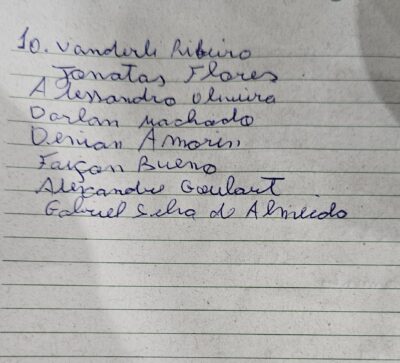 10. Vanderli Ribeiro
Jonatas Flores
Alessandro Oliveira
Darlan Machado
Denian Amorin
Faiçon Bueno
Alexandre Goulart
Gabriel Selva de Almeida